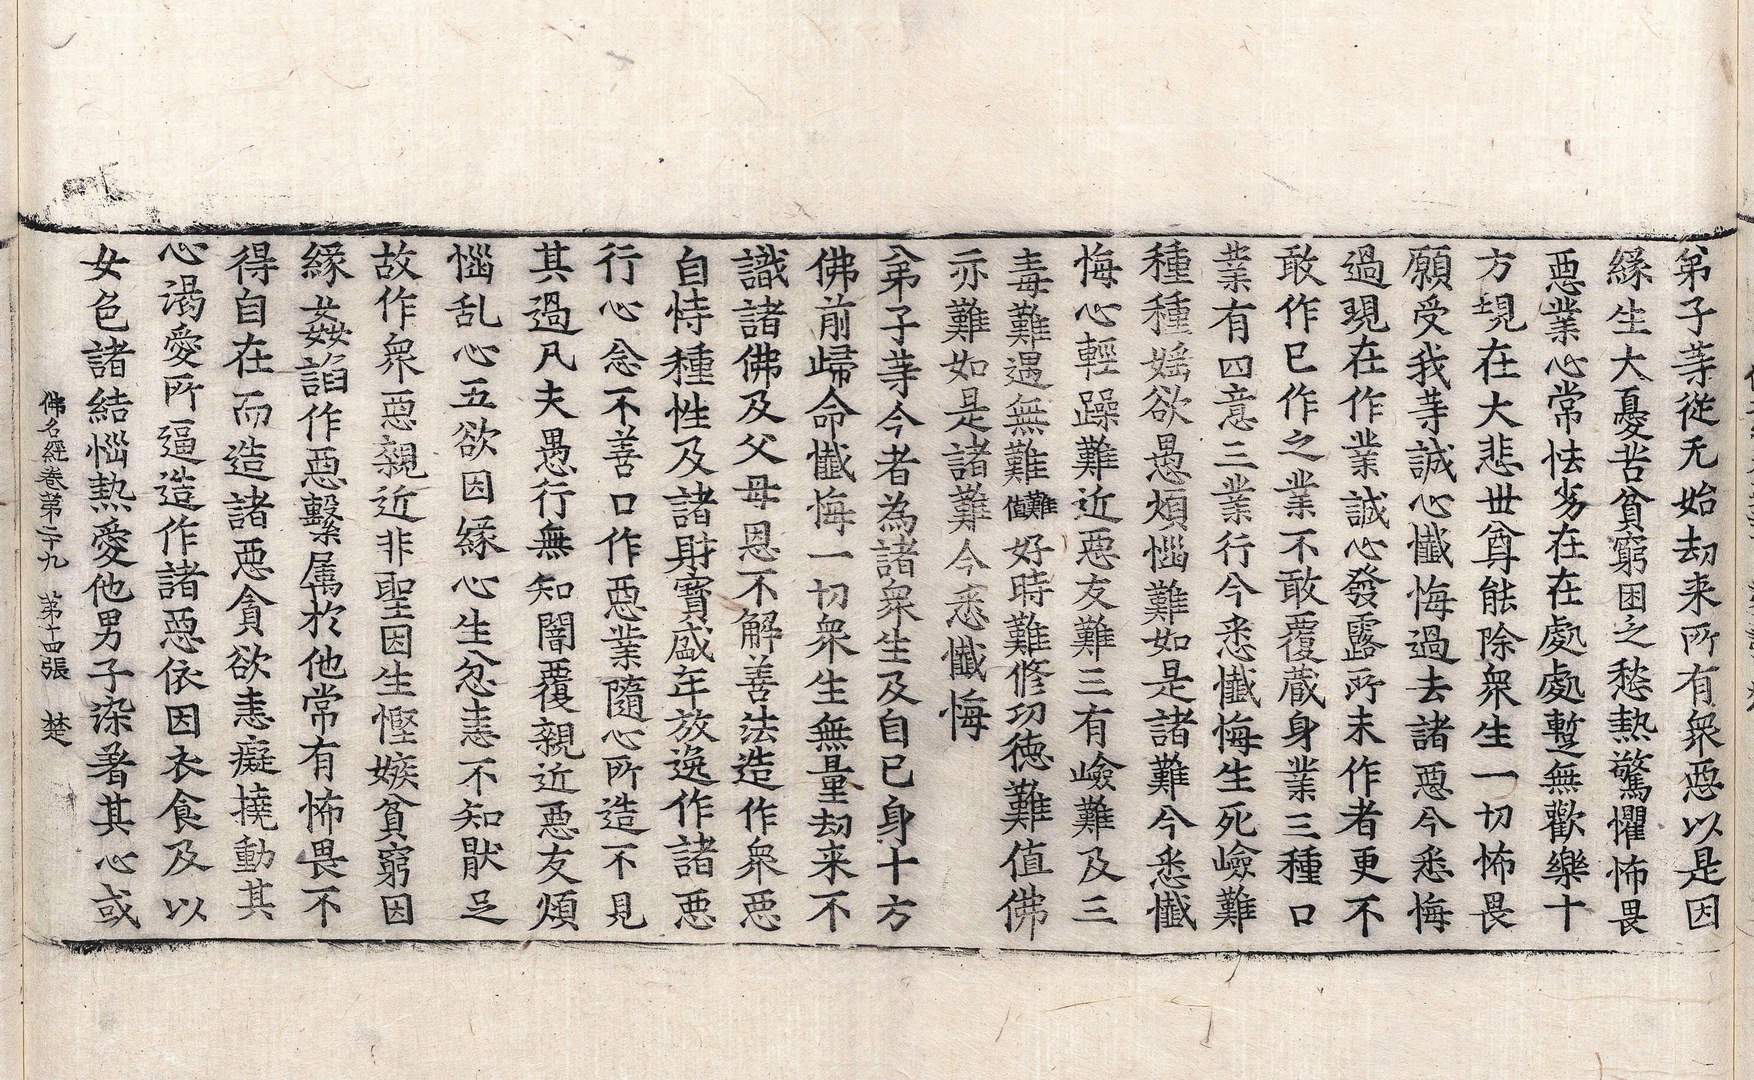 弟子䓁從无始劫来所有衆惡以是因
緣生大憂苦貧窮困乏愁熱驚懼怖畏
惡業心常怯劣在在處處蹔無歡樂十
方現在大悲世尊能除衆生一切怖畏
願受我䓁誠心懺悔過去諸惡今悉悔
過現在作業誠心發露所未作者更不
敢作已作之業不敢覆藏身業三種口
業有四意三業行今悉懺悔生死嶮難
種種婬欲愚煩惱難如是諸難今悉懺
悔心輕躁難近惡友難三有嶮難及三
毒難遇無難難值好時難修功德難值佛
亦難如是諸難今悉懺悔
弟子䓁今者為諸衆生及自己身十方
佛前歸命懺悔一切衆生無量劫来不
識諸佛及父母恩不解善法造作衆惡
自恃種性及諸財寶盛年放逸作諸惡
行心念不善口作惡業隨心所造不見
其過凡夫愚行無知闇覆親近惡友煩
惱乱心五欲因緣心生忿恚不知猒足
故作衆惡親近非聖因生慳嫉貧窮因
緣姦諂作惡繫属於他常有怖畏不
得自在而造諸惡貪欲恚癡撓動其
心渴愛所逼造作諸惡依因衣食及以
女色諸結惱熱愛他男子染著其心或
佛名經卷第二十九 第十四張 楚